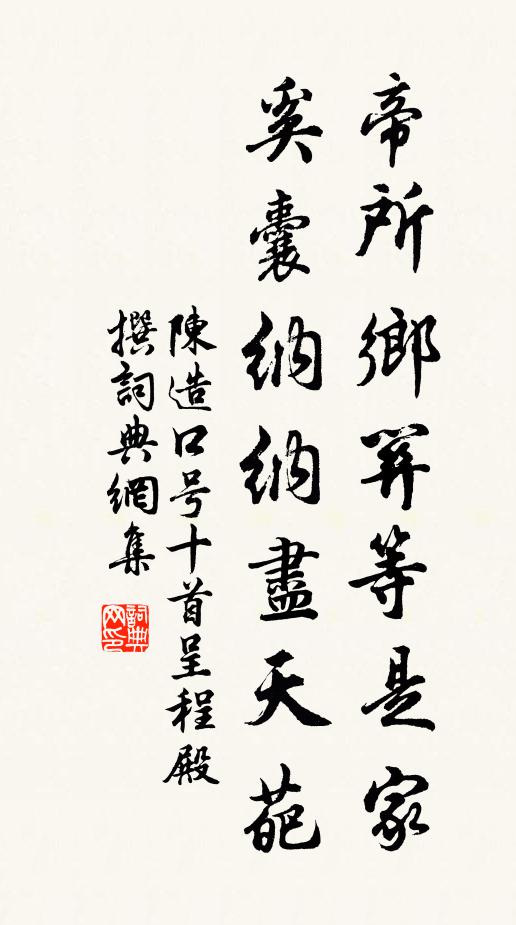 帝所鄉關等是家
奚囊納納盡天葩
陳造口号十首呈程殿
撰詞典網集
詞典
网印